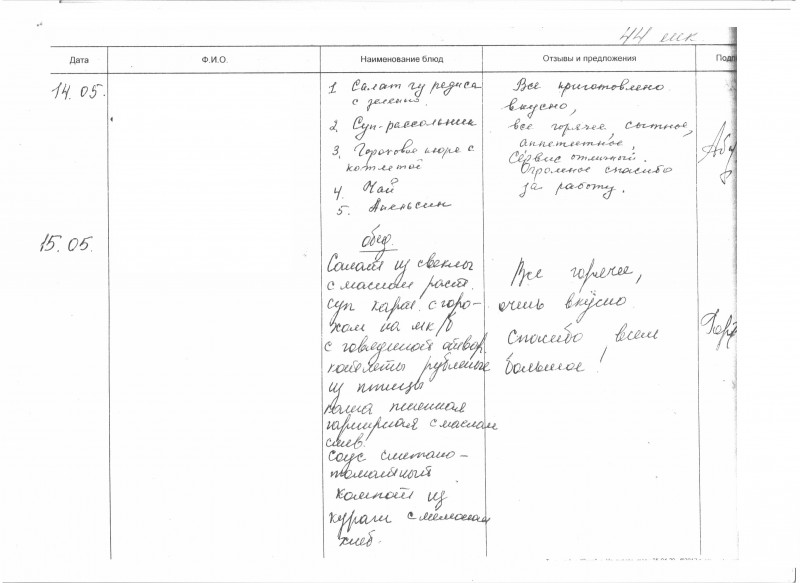 44 шк.
Дата Ф.И.О. Наименование блюд Отзывы и предложения Подп
14.05.
1 Салат из редиса
с зеленью.
2. Суп-рассольник
3. Гороховое пюре с
котлетой
4. Чай
5. Апельсин
Все приготовлено
вкусно,
все горячее, сытное,
аппетитное,
Сервис отличный.
Огромное спасибо
за работу.
15.05.
обед.
Салат из свеклы
с маслом раст.
Суп карт. с горо-
хом на мк/б
с говядиной отвар.
котлеты рубленые
из птицы
каша пшенная
гарнирная с маслом
слив.
Соус сметано-
томатный
компот из
кураги с лимоном
хлеб.
Все горячее,
очень вкусно
Спасибо всем
большое!